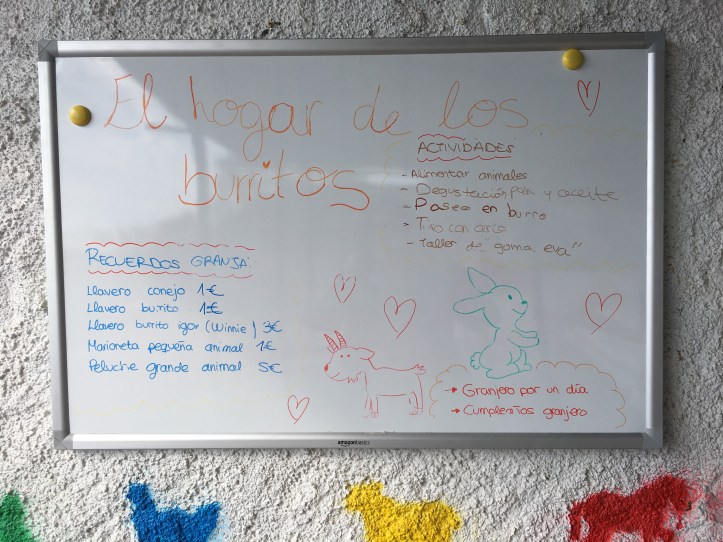 El hogar de los
burritos
ACTIVIDADES
- Alimentar animales
- Degustación pan y aceite
- Paseo en burro
- Tiro con arco
- Taller de "goma eva"
RECUERDOS GRANJA:
Llavero conejo 1€
Llavero burrito 1€
Llavero burrito igor (Winnie) 3€
Marioneta pequeña animal 1€
Peluche grande animal 5€
→ Granjero por un día
→ Cumpleaños granjero
amazonbasics